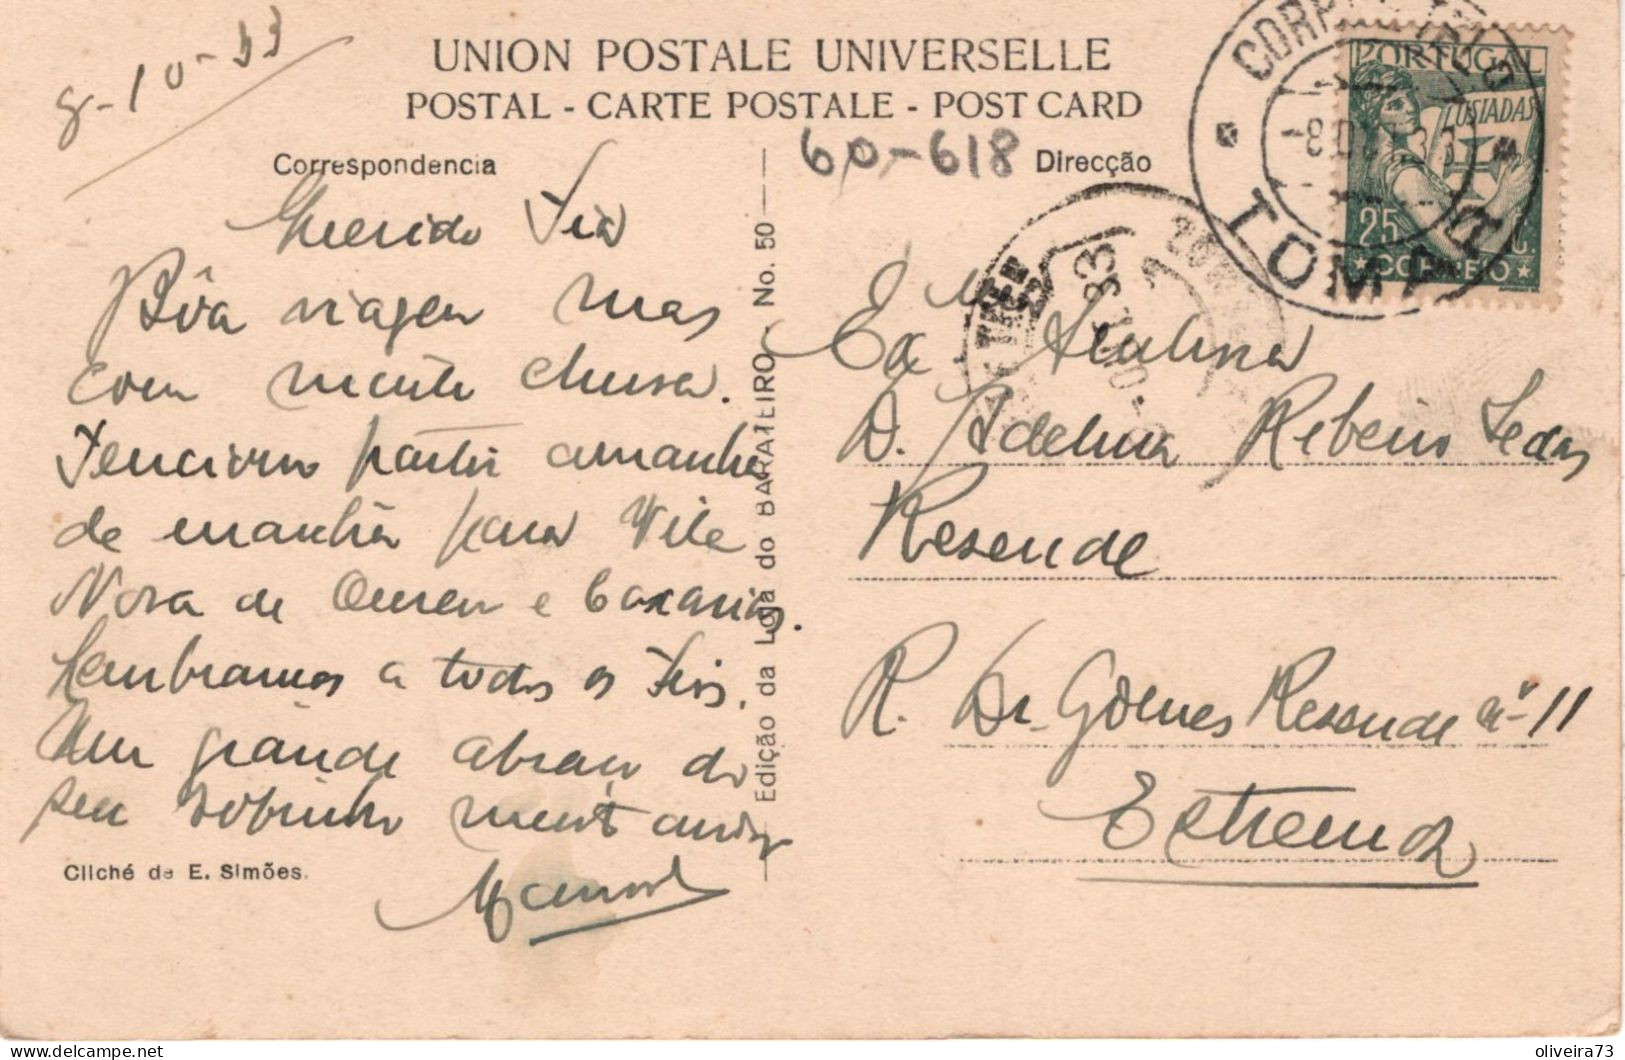 8-10-33
UNION POSTALE UNIVERSELLE
POSTAL - CARTE POSTALE - POST CARD
60-618
Correspondencia
Direcção
Querida Tia
Bôa viagem mas
com muita chuva.
Tenciono partir amanhã
de manhã para Vila
Nova de Ourem e Caxarias.
Lembranças a todos os Tios.
Um grande abraço do
seu sobrinho muito amigo
Manuel
Cliché de E. Simões.
Edição da Loja do BARATEIRO - No. 50
Exma Senhora
D. Adelina Ribeiro
Resende
R. Dr. Gomes Resende nº 11
Estremoz
PORTUGAL
LUSIADAS
25 C.
CORREIO
TOMAR
oliveira73